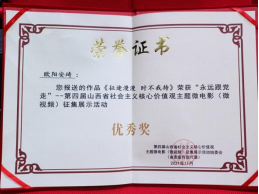 荣誉证书
欧阳安琦：
您报送的作品《征途漫漫 时不我待》荣获“永远跟党
走”--第四届山西省社会主义核心价值观主题微电影（微
视频）征集展示活动
优秀奖
第四届山西省社会主义核心价值观
主题微电影（微视频）征集展示活动组委会